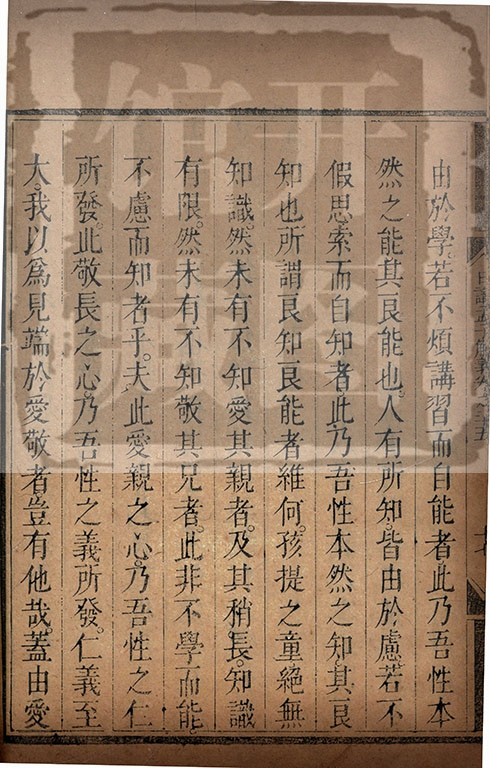 由於學。若不煩講習而自能者。此乃吾性本
然之能。其良能也。人有所知。皆由於慮。若不
假思索而自知者。此乃吾性本然之知。其良
知也。所謂良知良能者維何。孩提之童。絕無
知識。然未有不知愛其親者。及其稍長。知識
有限。然未有不知敬其兄者。此非不學而能。
不慮而知者乎。夫此愛親之心。乃吾性之仁
所發。此敬長之心。乃吾性之義所發。仁義至
大。我以為見端於愛敬者。豈有他哉。蓋由愛